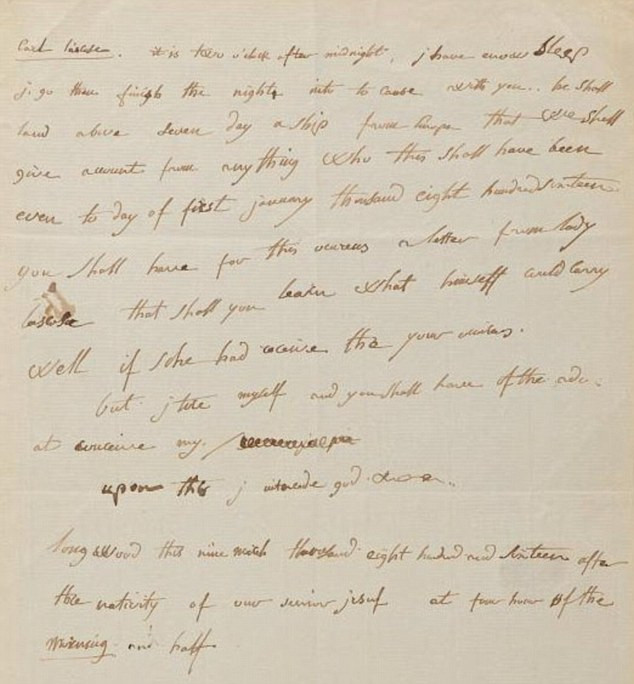 Count lascase. it is two o'clock after midnight, j have enow sleep
j go then finish the night into to cause with you... he shall
land above seven day a ship from Europe that we shall
give account from anything who this shall have been
even to day of first january thousand eight hundred sixteen.
you shall have for this ocurens a letter from lady
lascase that shall you learn what himself could carry
well if she had conceive the your occurens.
but j tire myself and you shall have of the ado
at conceive my
upon this j intercede god
longwood this nine march thousand eight hundred and sixteen after
the nativity of our saviour jesus at four hour of the
morning and half.